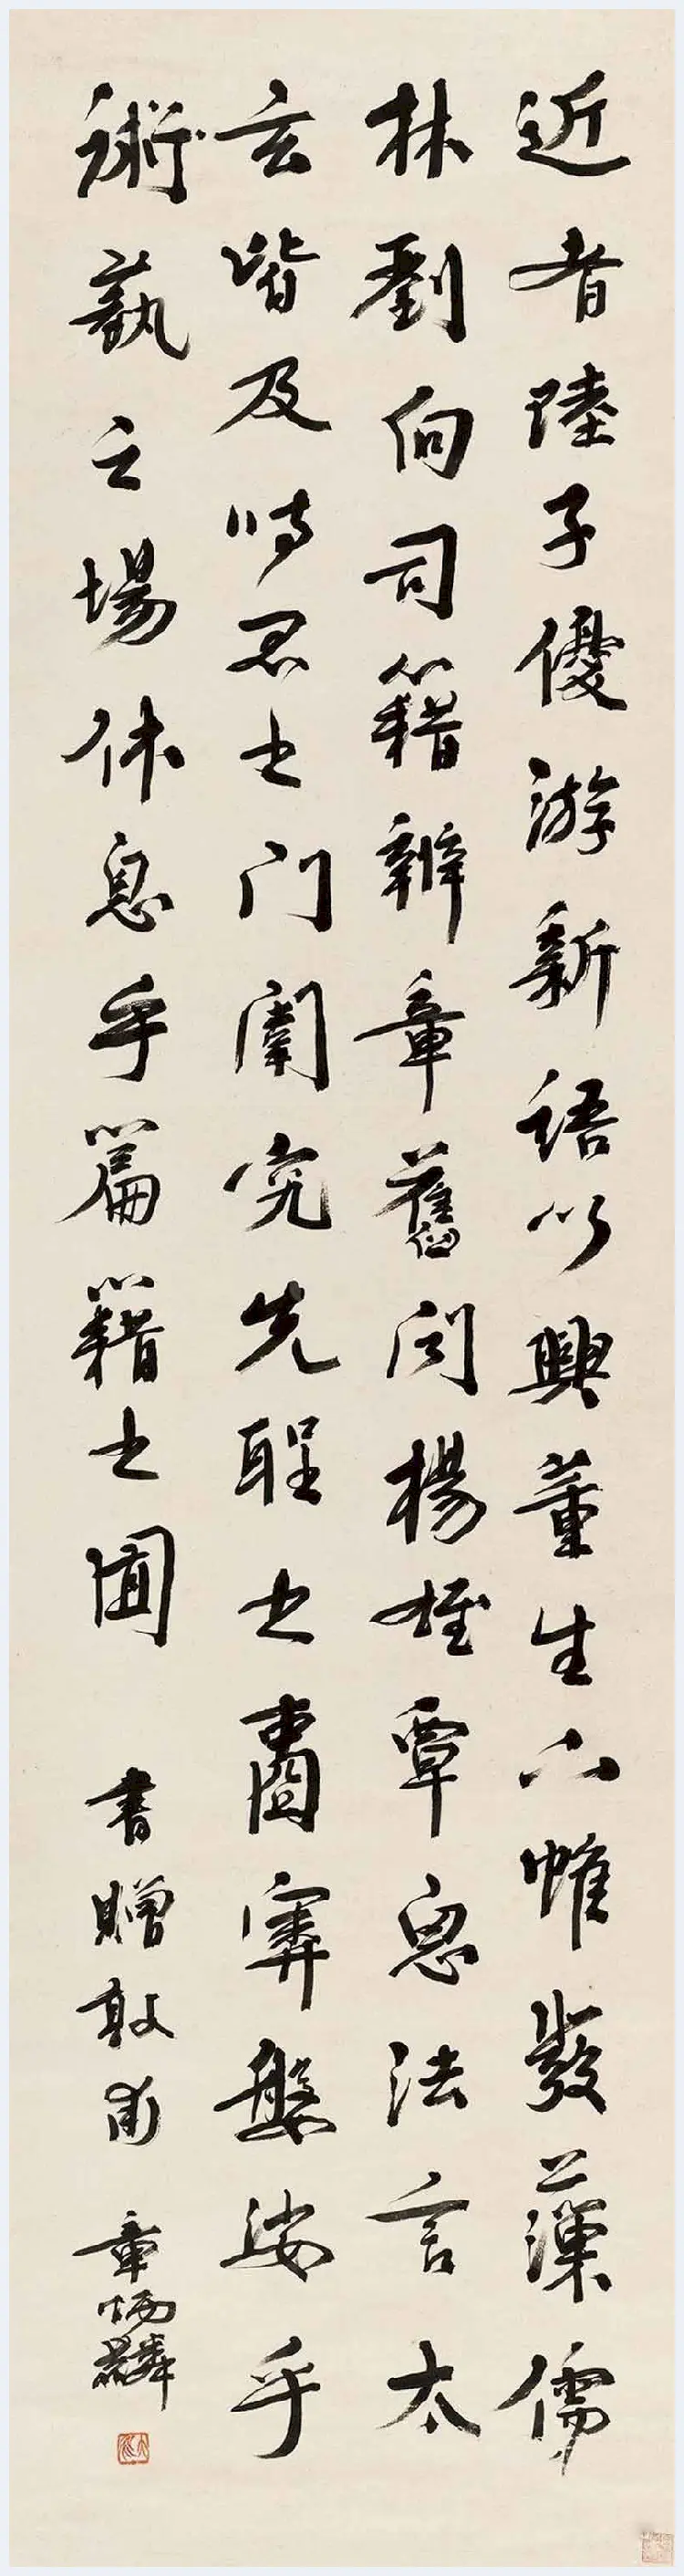 近者陸子優游新語以興董生下帷發藻儒
林劉向司籍辨章舊聞揚雄覃思法言太
玄皆及時君之門闈究先聖之壼奧婆娑乎
術藝之場休息乎篇籍之囿
書贈敬甫
章炳麟